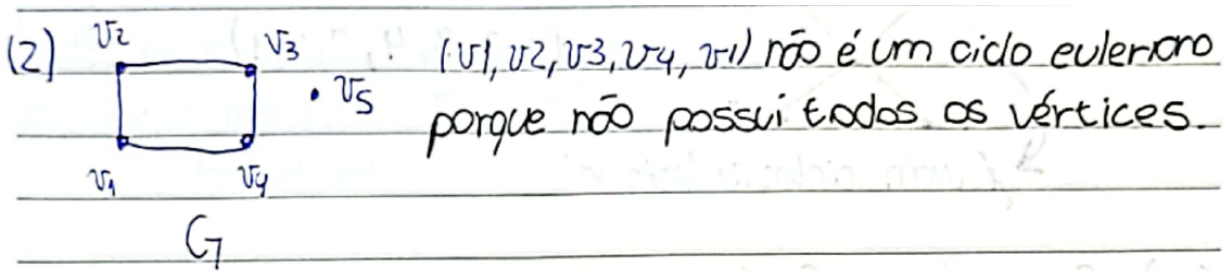 (2) v2 v3 (v1, v2, v3, v4, v1) não é um ciclo euleriano
v5 porque não possui todos os vértices.
v1 v4
G